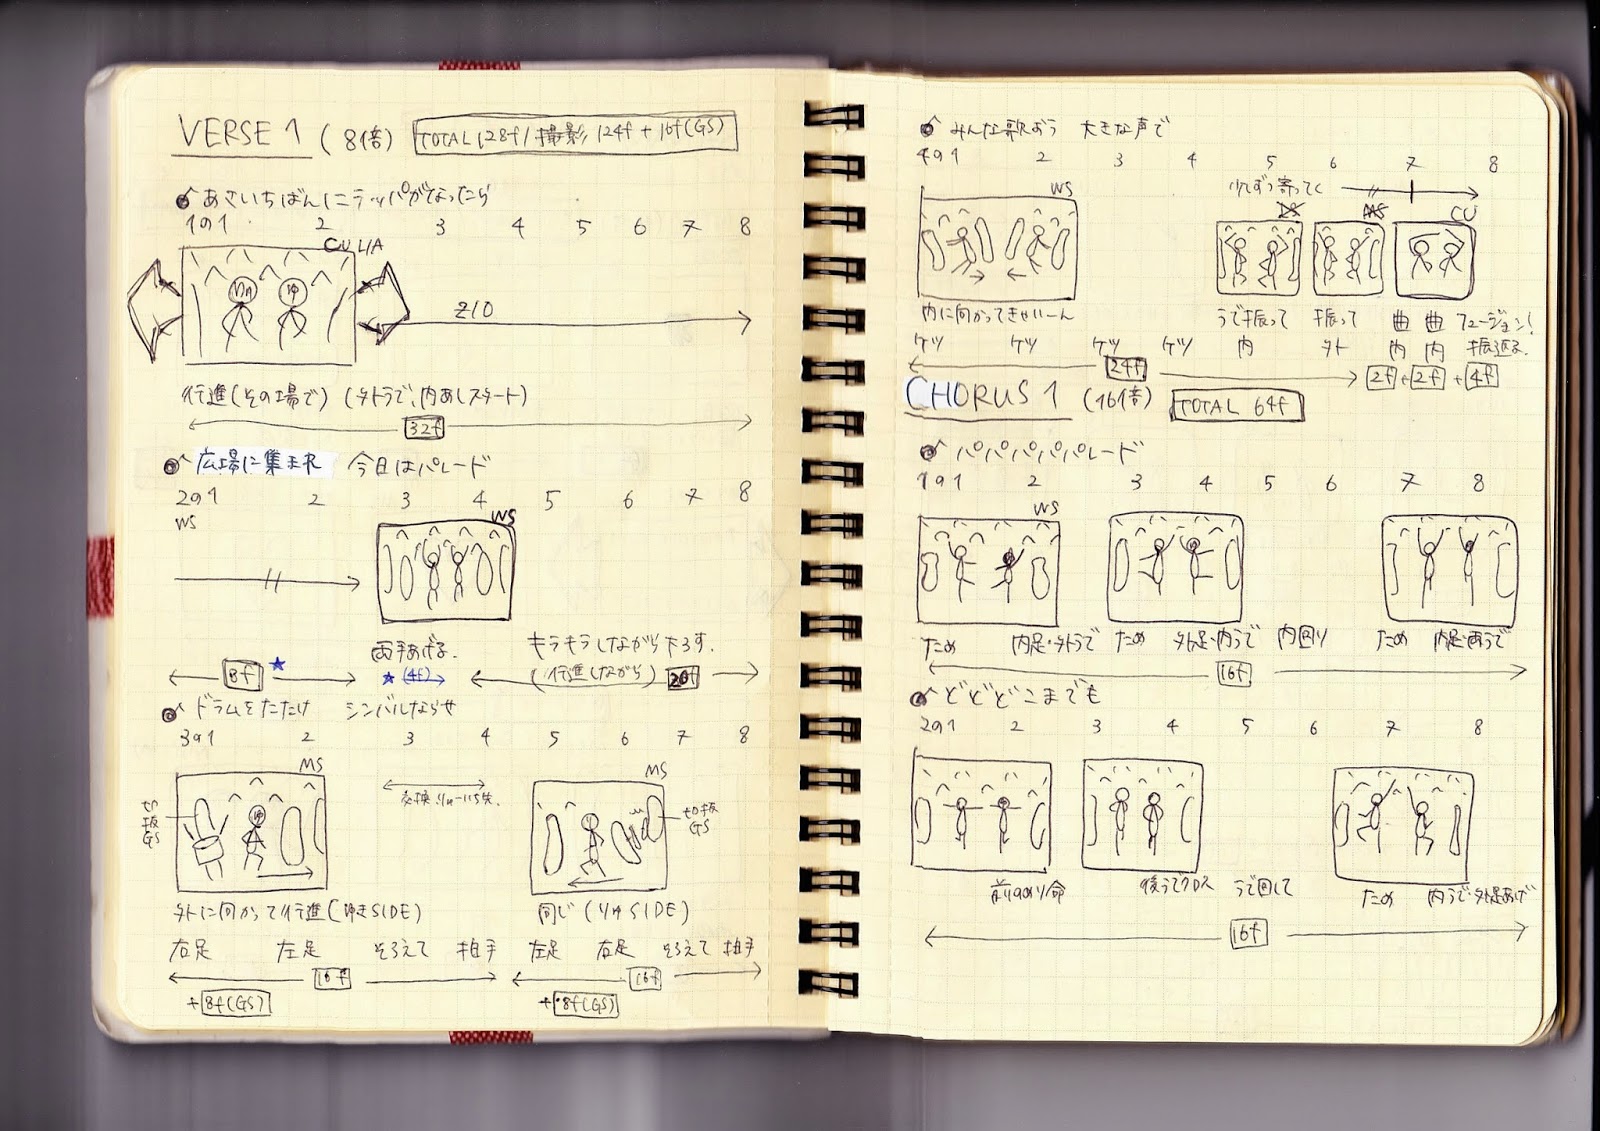 VERSE 1 (8倍) TOTAL 128f/撮影124f + 16f(GS)
あさいちばんにラッパがなったら
1の1 2 3 4 5 6 7 8
CU LIA
ゆ
Z/O
行進(その場で) (外うで、内あしスタート)
32f
広場に集まれ 今日はパレード
2の1 2 3 4 5 6 7 8
WS WS
両手あげる. キラキラしながら下ろす.
8f ★ ★ (4f) (行進しながら) 20f
ドラムをたたけ シンバルならせ
3の1 2 3 4 5 6 7 8
MS MS
切抜GS ゆ 切抜GS
外に向かって行進(ゆきSIDE) 同じ(りゅSIDE)
右足 左足 そろえて 拍手 左足 右足 そろえて 拍手
16f 16f
+8f(GS) +8f(GS)
みんな歌おう 大きな声で
4の1 2 3 4 5 6 7 8
少しずつ寄ってく
WS MS CU
内に向かってきゃいーん うで振って 振って 曲 曲 フュージョン!
ケツ ケツ ケツ ケツ 内 外 内 内 振返る.
24f 2f+2f+4f
CHORUS 1 (16倍) TOTAL 64f
パパパパパレード
1の1 2 3 4 5 6 7 8
WS
ため 内足・外うで ため 外足・内うで 内回り ため 内足・両うで
16f
どどどこまでも
2の1 2 3 4 5 6 7 8
前ならめり命 後うでクロス うで回して ため 内うで・外足あげ
16f